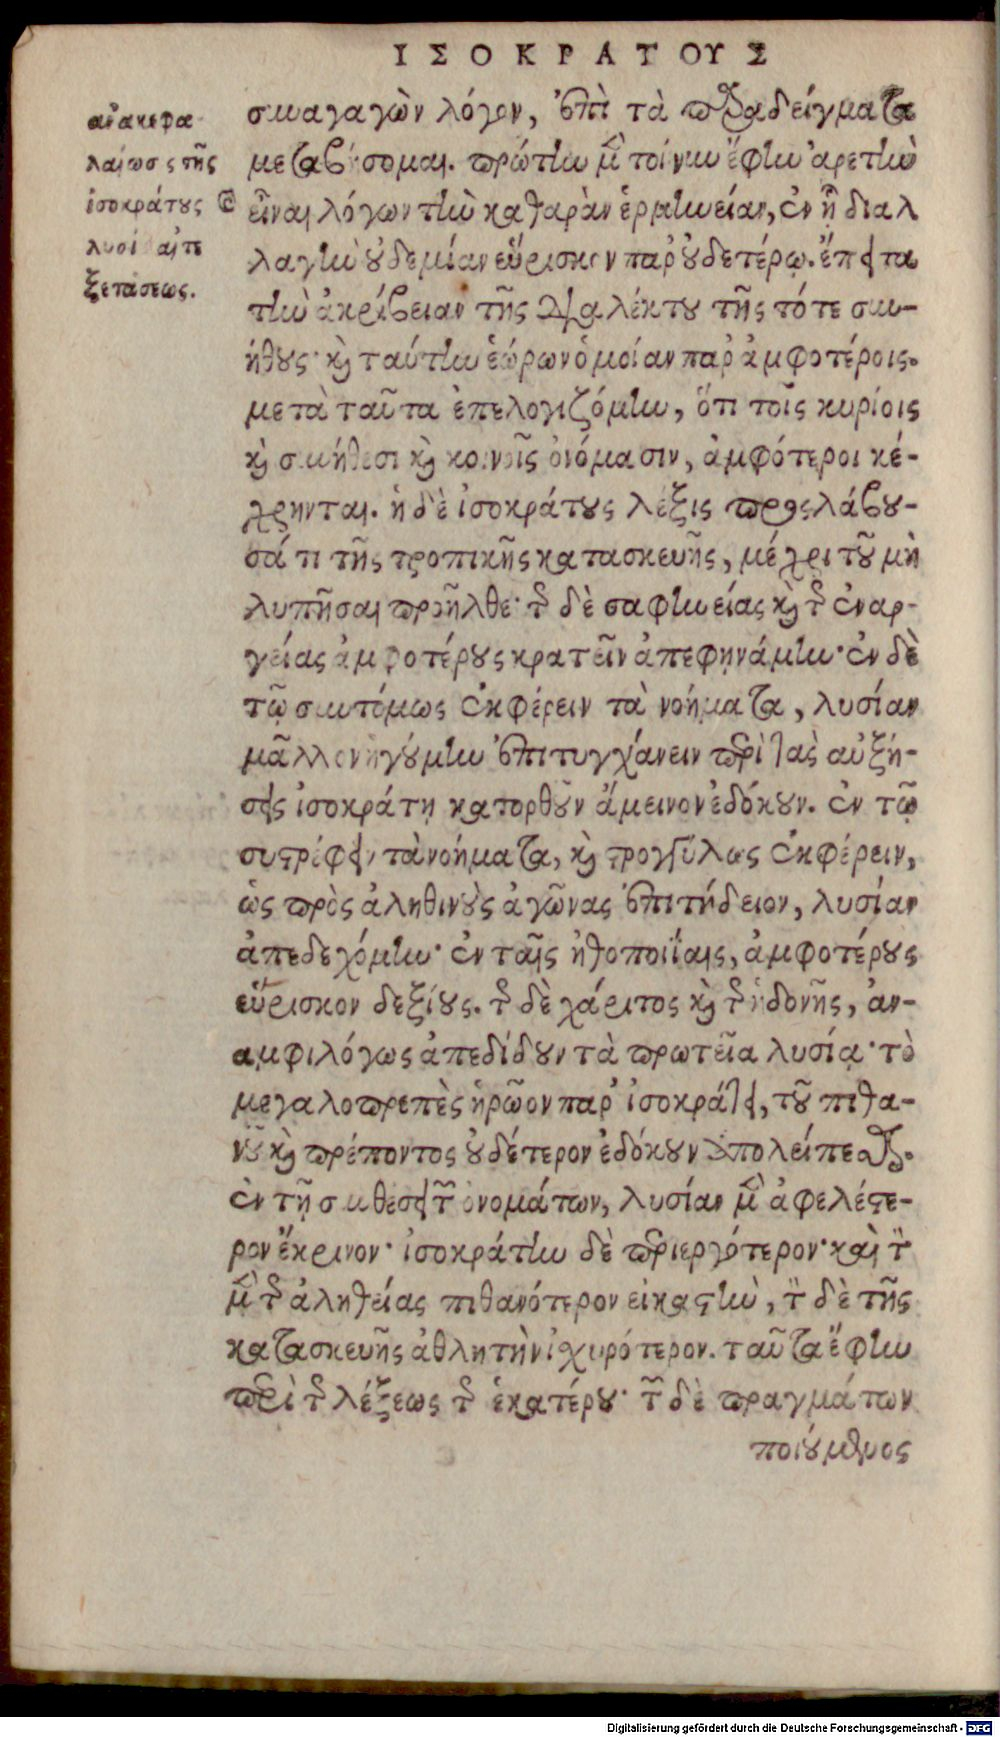 ΙΣΟΚΡΑΤΟΥΣ
συναγαγὼν λόγον, ἐπὶ τὰ παραδείγματα
μεταβήσομαι. πρώτην μὲν τοίνυν ἔφην ἀρετὴν
εἶναι λόγων τὴν καθαρὰν ἑρμηνείαν, ἐν ᾗ διαλ
λαγὴν οὐδεμίαν εὕρισκον παρ' οὐδετέρῳ. ἔπειτα
τὴν ἀκρίβειαν τῆς διαλέκτου τῆς τότε συν-
ήθους· καὶ ταύτην ἑώρων ὁμοίαν παρ' ἀμφοτέροις.
μετὰ ταῦτα ἐπελογιζόμην, ὅτι τοῖς κυρίοις
καὶ συνήθεσι καὶ κοινοῖς ὀνόμασιν, ἀμφότεροι κέ-
χρηνται. ἡ δὲ ἰσοκράτους λέξις προσλάβου-
σά τι τῆς τροπικῆς κατασκευῆς, μέχρι τοῦ μὴ
λυπῆσαι προῆλθε· τῆς δὲ σαφηνείας καὶ τῆς ἐναρ-
γείας ἀμφοτέρους κρατεῖν ἀπεφηνάμην· ἐν δὲ
τῷ συντόμως ἐκφέρειν τὰ νοήματα, λυσίαν
μᾶλλον ἡγούμην ἐπιτυγχάνειν περὶ τὰς αὐξή-
σεις ἰσοκράτη κατορθοῦν ἄμεινον ἐδόκουν. ἐν τῷ
συστρέφειν τὰ νοήματα, καὶ στρογγύλως ἐκφέρειν,
ὡς πρὸς ἀληθινοὺς ἀγῶνας ἐπιτήδειον, λυσίαν
ἀπεδεχόμην· ἐν ταῖς ἠθοποιΐαις, ἀμφοτέρους
εὕρισκον δεξιούς. τῆς δὲ χάριτος καὶ τῆς ἡδονῆς, ἀν-
αμφιλόγως ἀπεδίδουν τὰ πρωτεῖα λυσίᾳ· τὸ
μεγαλοπρεπὲς ἡρῷον παρ' ἰσοκράτει, τοῦ πιθα-
νοῦ καὶ πρέποντος οὐδέτερον ἐδόκουν ἀπολείπεσθαι.
ἐν τῇ συνθέσει τῶν ὀνομάτων, λυσίαν μὲν ἀφελέστε-
ρον ἔκρινον· ἰσοκράτην δὲ περιεργότερον· καὶ τὸν
μὲν τῆς ἀληθείας πιθανότερον εἰκαστὴν, τὸν δὲ τῆς
κατασκευῆς ἀθλητὴν ἰσχυρότερον. ταῦτα ἔφην
περὶ τῆς λέξεως τῆς ἑκατέρου· τῶν δὲ πραγμάτων
ποιούμενος
ἀνακεφα
λαίωσις τῆς
ἰσοκράτους @
λυσί αι τε
ξετάσεως.
Digitalisierung gefördert durch die Deutsche Forschungsgemeinschaft - DFG